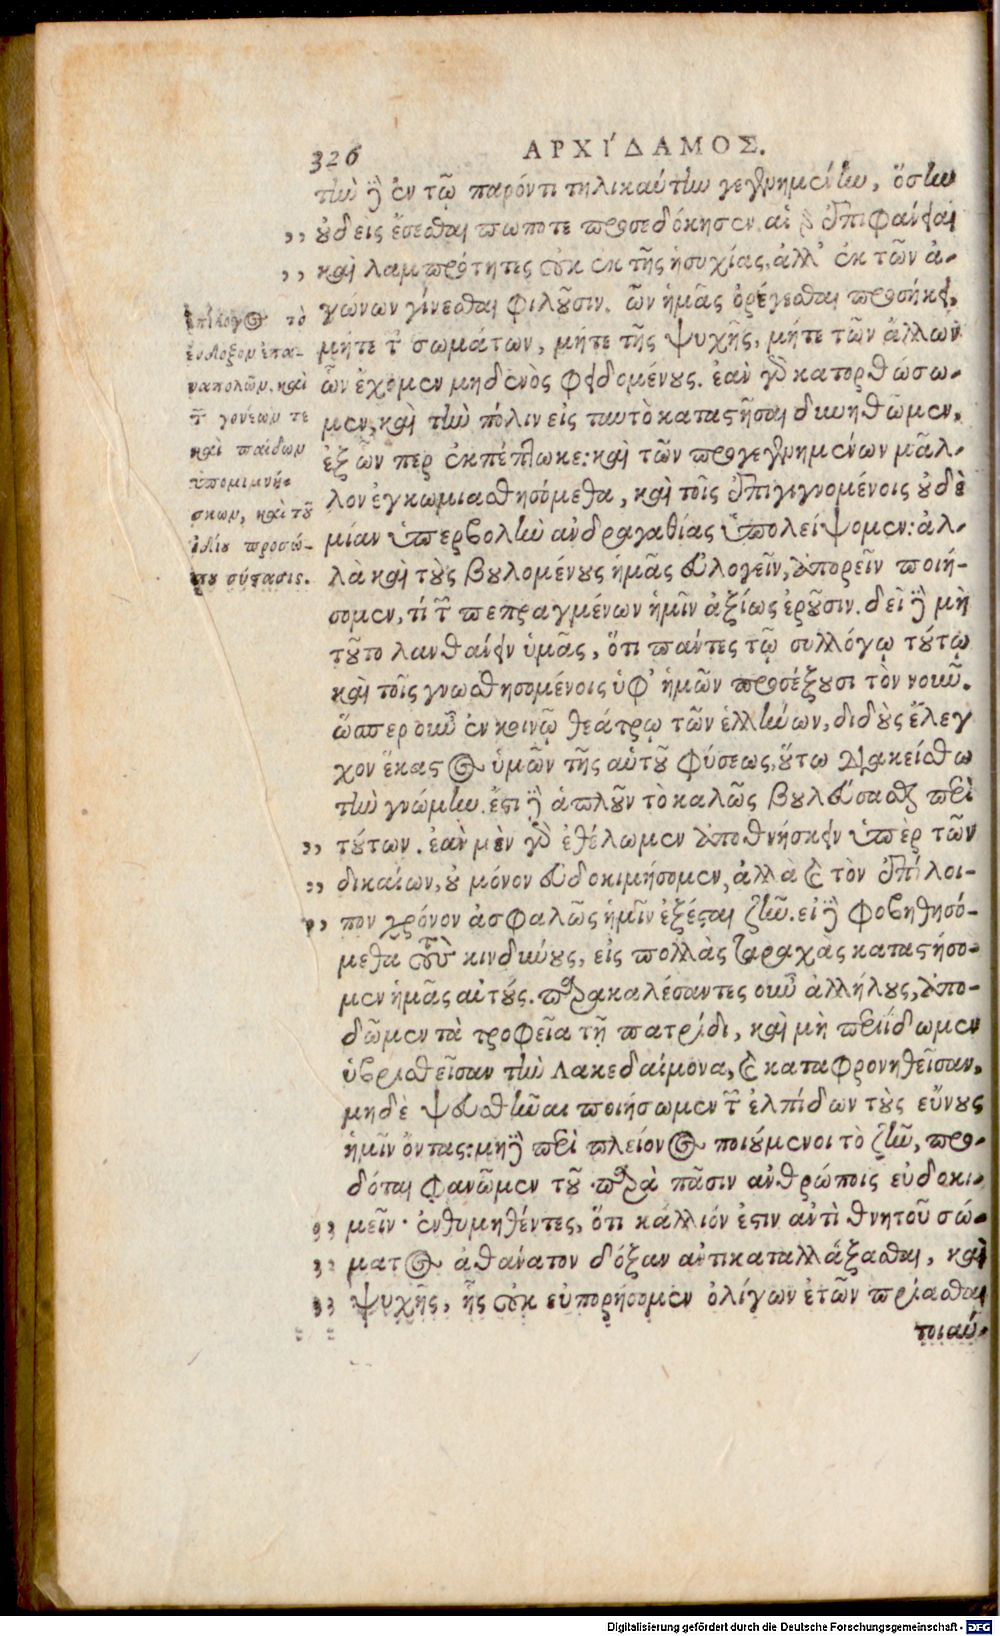 326
ΑΡΧΊΔΑΜΟΣ.
τὴν δὲ ἐν τῷ παρόντι τηλικαύτην γεγενημένην, ὅσην
οὐδεὶς ἔσεσθαι πώποτε προσεδόκησεν. αἱ δ᾽ ἐπιφάνειαι
καὶ λαμπρότητες οὐκ ἐκ τῆς ἡσυχίας, ἀλλ᾽ ἐκ τῶν ἀ-
γώνων γίνεσθαι φιλοῦσιν. ὧν ἡμᾶς ὀρέγεσθαι προσήκει,
μήτε τῶν σωμάτων, μήτε τῆς ψυχῆς, μήτε τῶν ἄλλων
ὧν ἔχομεν μηδενὸς φειδομένους. ἐὰν γὰρ κατορθώσω-
μεν, καὶ τὴν πόλιν εἰς ταυτὸ καταστῆσαι δυνηθῶμεν,
ἐξ ὧν περ ἐκπέπτωκε: καὶ τῶν προγεγενημένων μᾶλ-
λον ἐγκωμιασθησόμεθα, καὶ τοῖς ἐπιγιγνομένοις οὐδε
μίαν ὑπερβολὴν ἀνδραγαθίας ὑπολείψομεν: ἀλ-
λὰ καὶ τοὺς βουλομένους ἡμᾶς εὐλογεῖν, ἀπορεῖν ποιή-
σομεν, τί τῶν πεπραγμένων ἡμῖν ἀξίως ἐροῦσιν. δεῖ δὲ μὴ
τοῦτο λανθάνειν ὑμᾶς, ὅτι πάντες τῷ συλλόγῳ τούτῳ
καὶ τοῖς γνωσθησομένοις ὑφ᾽ ἡμῶν προσέξουσι τὸν νοῦν.
ὥσπερ οὖν ἐν κοινῷ θεάτρῳ τῶν ἑλλήνων, διδοὺς ἔλεγ
χον ἕκαστος ὑμῶν τῆς αὑτοῦ φύσεως, οὕτω διακείσθω
τὴν γνώμην. ἔστι δὲ ἁπλοῦν τὸ καλῶς βουλεύσασθαι περὶ
τούτων. ἐὰν μὲν γὰρ ἐθέλωμεν ἀποθνήσκειν ὑπὲρ τῶν
δικαίων, οὐ μόνον εὐδοκιμήσομεν, ἀλλὰ καὶ τὸν ἐπίλοι-
πον χρόνον ἀσφαλῶς ἡμῖν ἐξέσται ζῆν. εἰ δὲ φοβηθησό-
μεθα τοὺς κινδύνους, εἰς πολλὰς ταραχὰς καταστήσο-
μεν ἡμᾶς αὐτούς. παρακαλέσαντες οὖν ἀλλήλους, ἀπο-
δῶμεν τὰ τροφεῖα τῇ πατρίδι, καὶ μὴ περιίδωμεν
ὑβρισθεῖσαν τὴν Λακεδαίμονα, καὶ καταφρονηθεῖσαν,
μηδὲ ψευσθῆναι ποιήσωμεν τῶν ἐλπίδων τοὺς εὔνους
ἡμῖν ὄντας: μηδὲ περὶ πλείονος ποιούμενοι τὸ ζῆν, προ-
δόται φανῶμεν τοῦ παρὰ πᾶσιν ἀνθρώποις εὐδοκι-
μεῖν· ἐνθυμηθέντες, ὅτι κάλλιόν ἐστιν ἀντὶ θνητοῦ σώ-
ματος ἀθάνατον δόξαν ἀντικαταλλάξασθαι, καὶ
ψυχῆς, ἧς οὐκ εὐπορήσομεν ὀλίγων ἐτῶν πρίασθαι
τοιαύ-
ἐπίλογος τὸ
ἔνδοξον ἐπα-
ναπολῶν, καὶ
τῶν γονέων τε
καὶ παίδων
ὑπομιμνή-
σκων, καὶ τοῦ
ἰδίου προσώ-
που σύστασις.
Digitalisierung gefördert durch die Deutsche Forschungsgemeinschaft - DFG